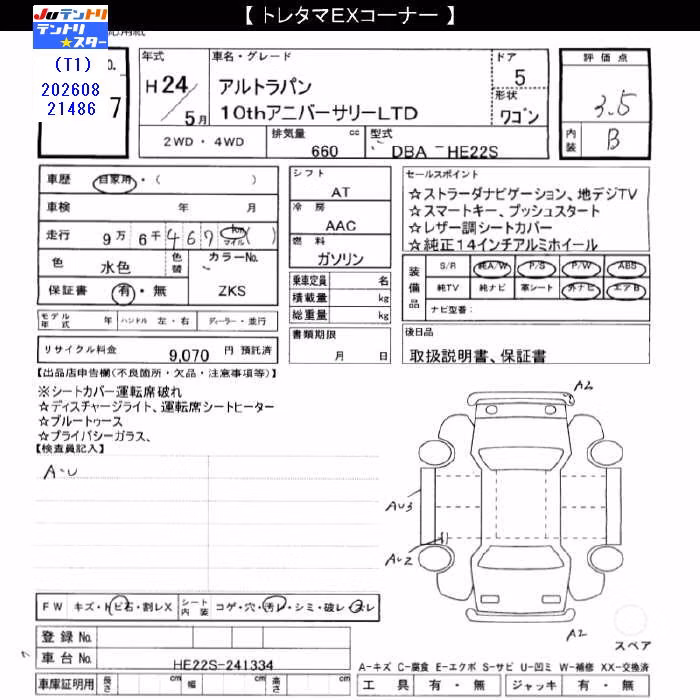 【 トレタマEXコーナー 】
Juテントリ
テントリ
★スター
(T1)
202608
21486
7
年式
H 24/5月
車名・グレード
アルトラパン
10thアニバーサリーLTD
ドア
5
形状
ワゴン
評価点
3.5
内装
B
2WD・4WD
排気量 cc
660
型式
DBA-HE22S
車歴 自家用・( )
車検 年 月
走行 9万 6千 467 km マイル ( )
色 水色 色替 カラーNo.
保証書 有・無 ZKS
シフト
AT
冷房
AAC
燃料
ガソリン
乗車定員 名
積載量 kg
総重量 kg
セールスポイント
☆ストラーダナビゲーション、地デジTV
☆スマートキー、プッシュスタート
☆レザー調シートカバー
☆純正14インチアルミホイール
装備品
S/R 純A/W P/S P/W ABS
純TV 純ナビ 革シート 外ナビ エアB
ナビ型番:
モデル年式 年 ハンドル 左・右 ディーラー・並行
書類期限
月 日
後日品
取扱説明書、保証書
リサイクル料金 9,070 円 預託済
【出品店申告欄(不良箇所・欠品・注意事項等)】
※シートカバー運転席破れ
☆ディスチャージライト、運転席シートヒーター
☆ブルートゥース
☆プライバシーガラス、
【検査員記入】
A-U
A2
AU3
AU2
A2
スペア
FW キズ・トビ石・割レX シート内装 コゲ・穴・汚レ・シミ・破レ・スレ
登録No.
車台No. HE22S-241334
車庫証明用 長さ cm 幅 cm 高さ cm
A-キズ C-腐食 E-エクボ S-サビ U-凹ミ W-補修 XX-交換済
工具 有・無 ジャッキ 有・無